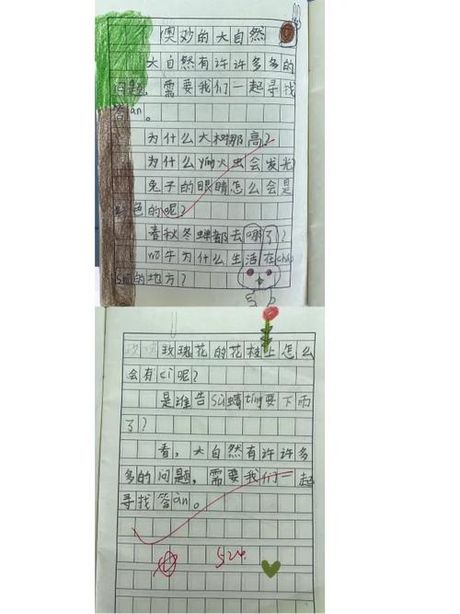 奥妙的大自然
大自然有许许多多的
问题，需要我们一起寻找
答àn。
为什么大树那高？
为什么yíng火虫会发光？
兔子的眼睛怎么会是
色的呢？
春秋冬蝉都去哪了？
牛为什么生活在cháo
shī的地方？
玫瑰花的花枝上怎么
会有cì呢？
是谁告sù蜻tíng要下雨
了？
看，大自然有许许多
多的问题，需要我们一起
寻找答àn。
5.24